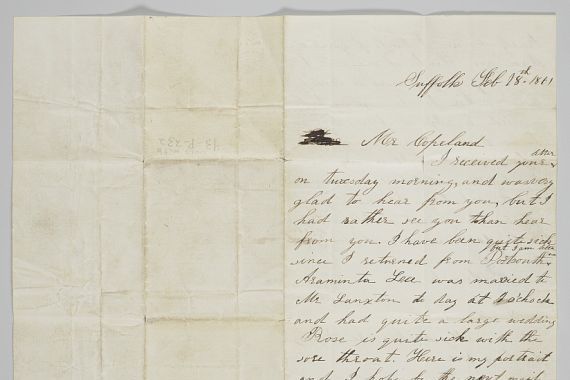 Suffolk Feb 18th 1861
Mr Copeland
I received your
on tuesday morning, and was very
glad to hear from you, but I
had rather see you than hear
from you. I have been quite sick
but I am
since I returned from
Araminta Lee was married to
Mr Lanxton to day at 1 o'clock
and had quite a large wedding
Rose is quite sick with the
sore throat. Here is my portrait
and I hope by the next mail